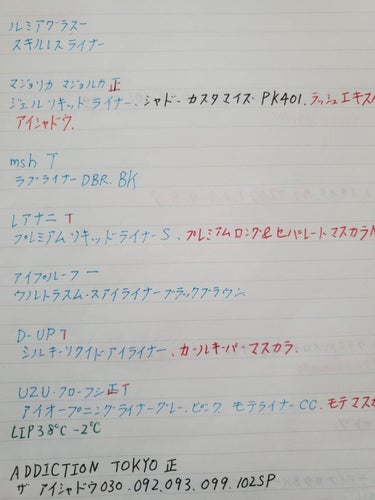 ルミアグラスー
スキルレスライナー
マジョリカ マジョルカ 正
ジェルリキッドライナー、シャドーカスタマイズPK401、ラッシュエキス
アイシャドウ、
msh T
ラブライナーDBR、BK
レアナニ T
プレミアムリキッドライナーS、プレミアムロング&セパレートマスカラ
アイプルーフ 一
ウルトラスムースアイライナーブラックブラウン
D-UP T
シルキーリクイドアイライナー、カールキーパーマスカラ、
UZU・フローフシ正T
アイオープニングライナーグレー、ピンク、モテライナーCC、モテマス
LIP38℃-2℃
ADDICTION TOKYO 正
ザ アイシャドウ030、092、093、099、102SP